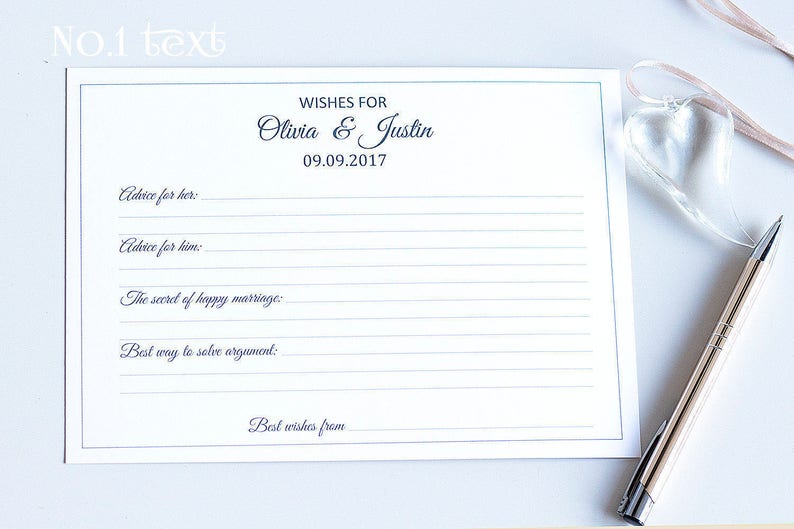 No.1 text
WISHES FOR
Olivia & Justin
09.09.2017
Advice for her:
Advice for him:
The secret of happy marriage:
Best way to solve argument:
Best wishes from